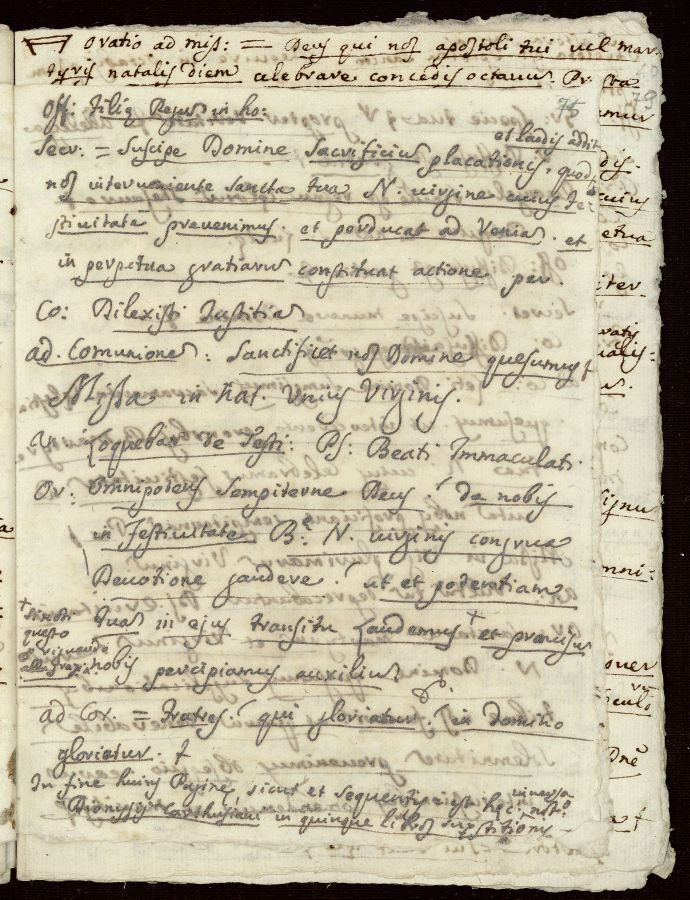 Oratio ad miss: = Deus qui nos apostoli tui uel mar-
tyris natalis diem celebrare concedis octauus. Pr.
79
75
Off: Filiq Regus in ho:
et laudis addit
Secr: = Suscipe Domine Sacrificius placationis, quod
nos interueniente Sancta tua N. uirgine cuius fe-
stiuitate preuenimus. et perducat ad Venias. et
in perpetua gratiarus constituat actione per
Co: Dilexisti Iustitias
ad Comuniones: Sanctificet nos Domine quesumus
Missa in Nat. Unius Virginis.
In Loquebar de Testi: Ps: Beati Immaculati.
Or: Omnipotens Sempiterne Deus da nobis
in Festiuitate Bᵉ N. uirginis congrua
Deuotione gaudere. ut et potentiam
tuas in ejus transitu laudemus + et promisus
+
questo
riguarda
nobis percipiamus auxilius
ad Cor. = Fratres. qui gloriatur. in Domino
gloriatur. +
In fine huius Pagine, sicut et sequentis est hec
Dionysij Carthusiani in quinque libros